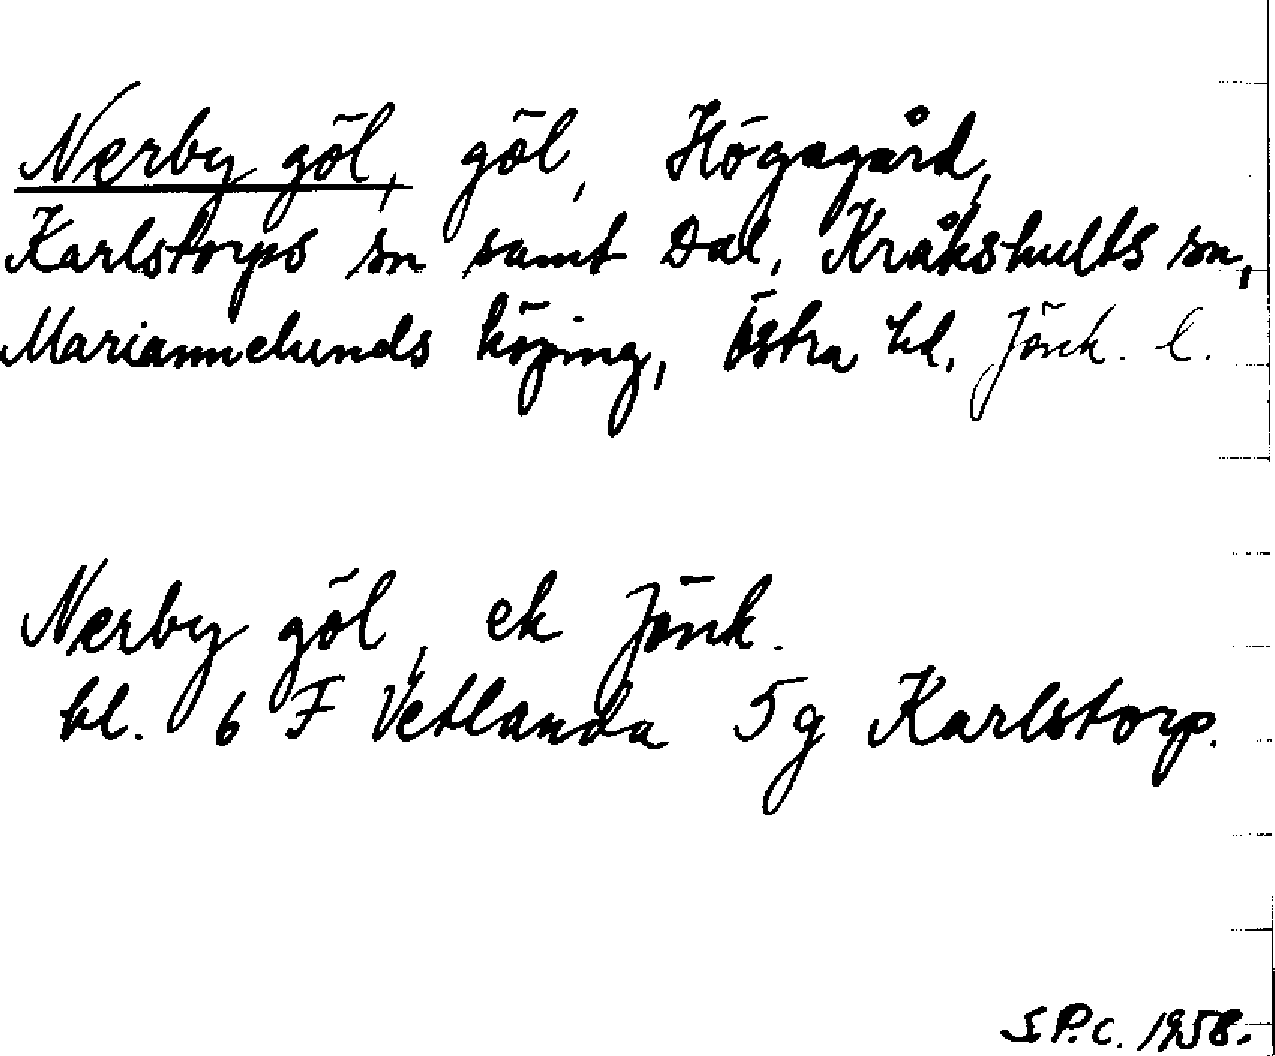 Nerby göl, göl, Högagård,
Karlstorps sn samt Dal, Kråkshults sn,
Mariannelunds köping, Östra hd, Jönk. l.
Nerby göl, ek Jönk.
bl. 6 F Vetlanda 5g Karlstorp.
S.P.C. 1958.